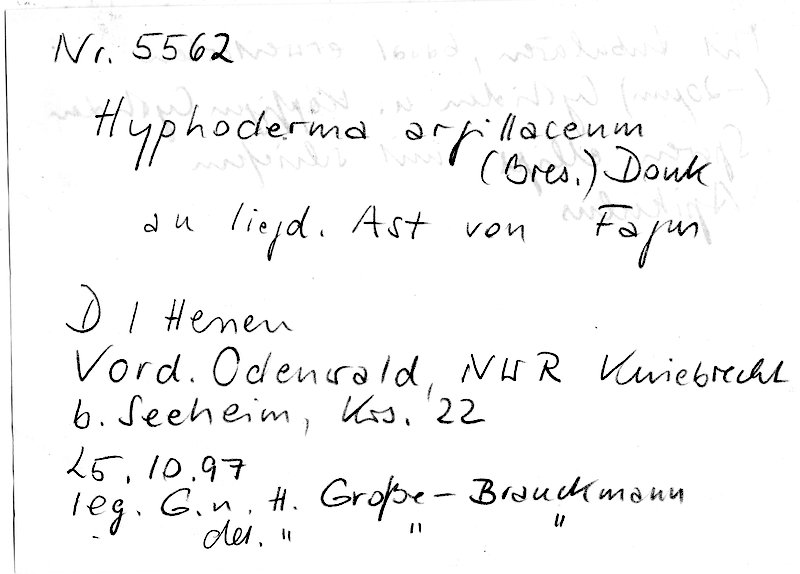 Nr. 5562
Hyphoderma argillaceum
(Bres.) Donk
an liegd. Ast von Fagus
D / Hessen
Vord. Odenwald, NWR Kniebrecht
b. Seeheim, Krs. 22
25.10.97
leg. G. u. H. Große-Brauckmann
det. " " "